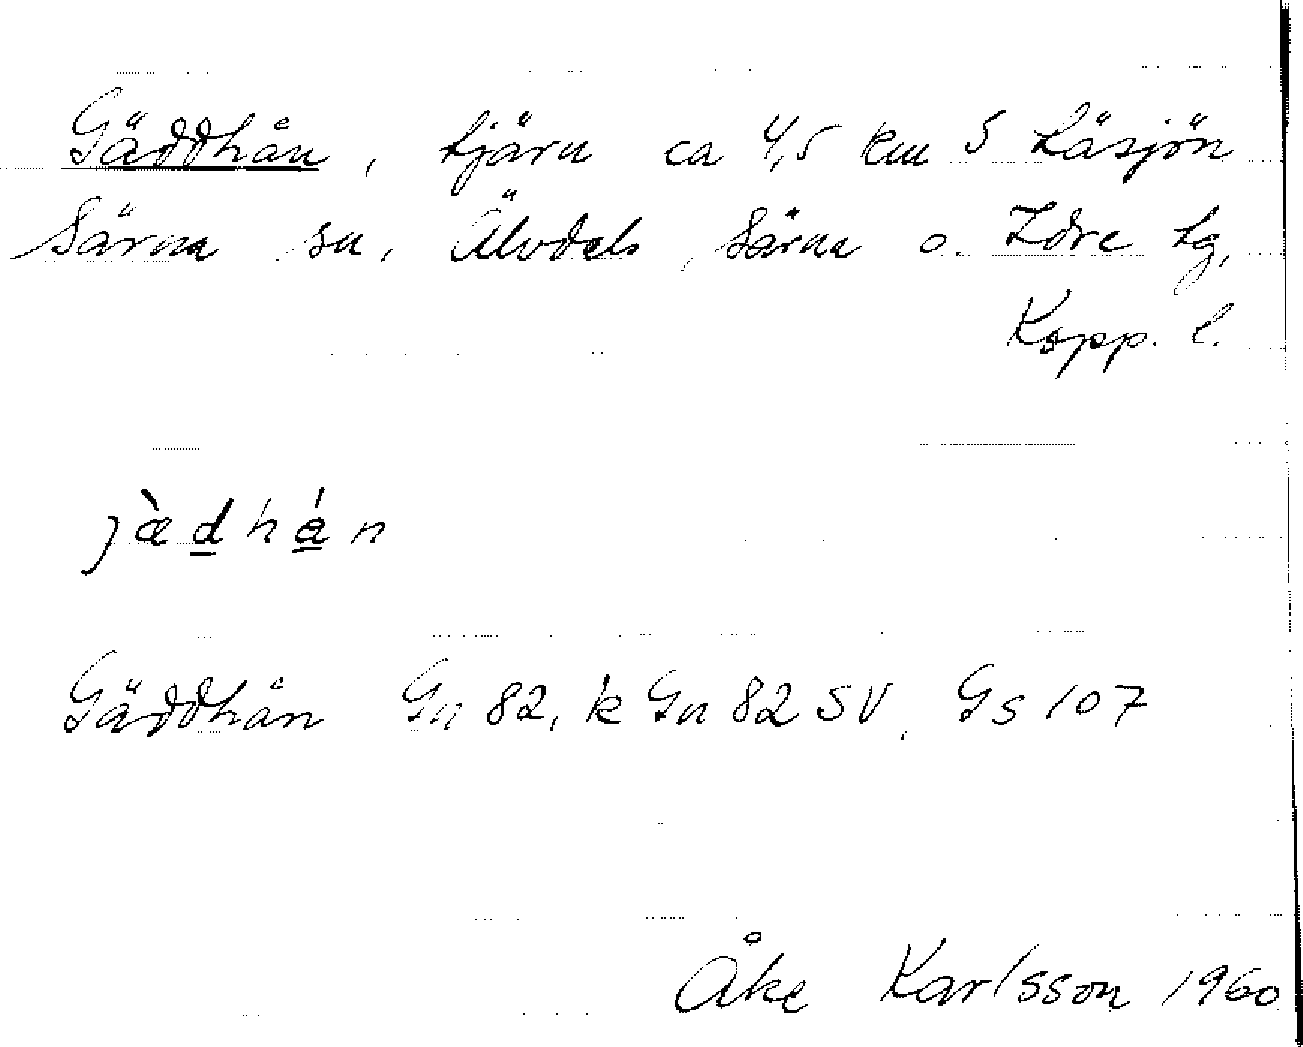 Gäddhån, tjärn ca 4,5 km S Läsjön
Särna sn, Älvdals, Särna o. Idre tg,
Kopp. l.
jæ̀d̲há̲n
Gäddhån Gn 82, k Gn 82 SV, Gs 107
Åke Karlsson 1960